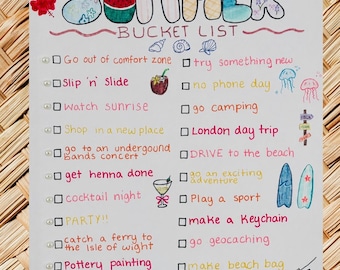 SUMMER
BUCKET LIST
Go out of comfort zone
Slip 'n' Slide
Watch sunrise
Shop in a new place
go to an underground
Bands concert
get henna done
cocktail night
PARTY!!
catch a ferry to
the isle of wight
Pottery painting
try something new
no phone day
go camping
London day trip
DRIVE to the beach
go an exciting
adventure
Play a sport
make a Keychain
go geocaching
make beach bag